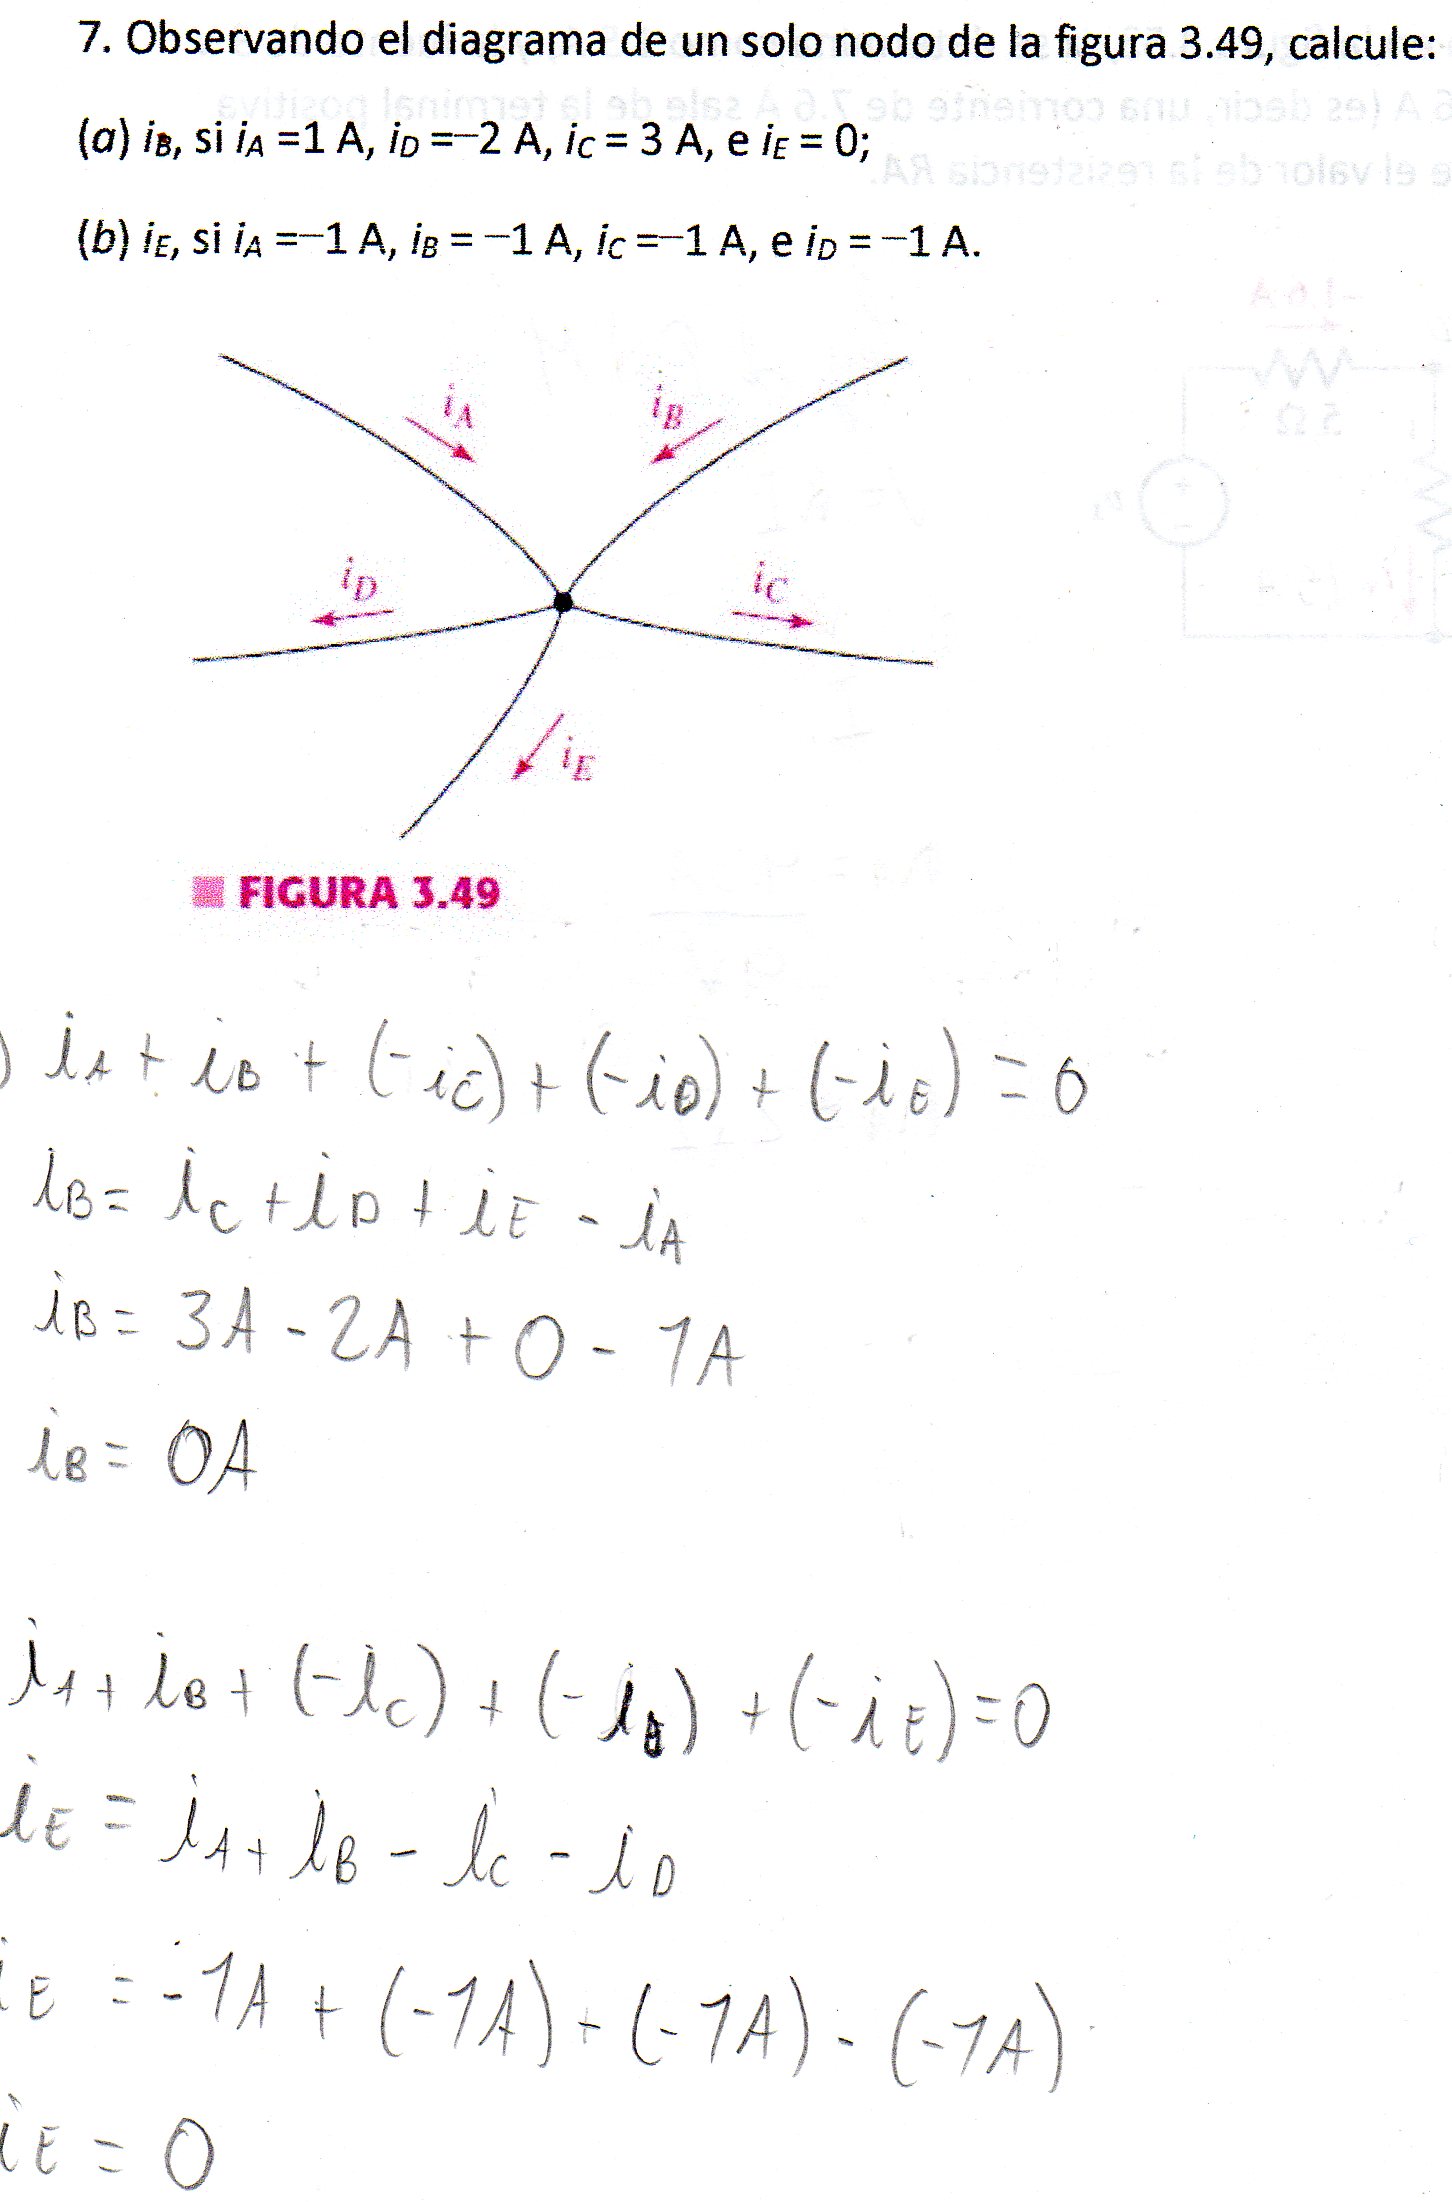 7. Observando el diagrama de un solo nodo de la figura 3.49, calcule:
(a) iB, si iA =1 A, iD =−2 A, iC = 3 A, e iE = 0;
(b) iE, si iA =−1 A, iB = −1 A, iC =−1 A, e iD = −1 A.
iA iB
iD iC
iE
FIGURA 3.49
) iA + iB + (-iC) + (-iD) + (-iE) = 0
iB = iC + iD + iE - iA
iB = 3A - 2A + 0 - 1A
iB = 0A
iA + iB + (-iC) + (-iD) + (-iE) = 0
iE = iA + iB - iC - iD
iE = -1A + (-1A) - (-1A) - (-1A)
iE = 0